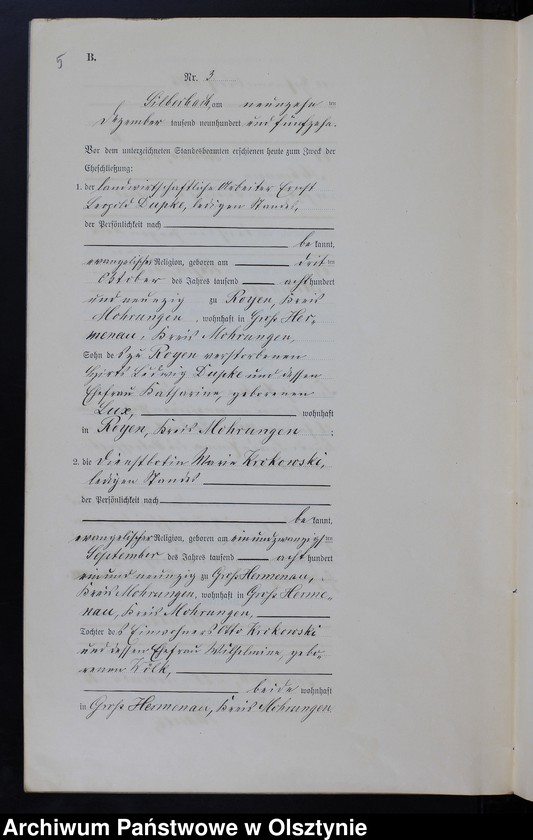 5
B.
Nr. 3
Silberbach, am neunzehn ten
Dezember tausend neunhundert und fünfzehn.
Vor dem unterzeichneten Standesbeamten erschienen heute zum Zweck der
Eheschließung:
1. der landwirtschaftliche Arbeiter Ernst
Leopold Dupke, ledigen Standes,
der Persönlichkeit nach
be kannt,
evangelischer Religion, geboren am dritten
Oktober des Jahres tausend acht hundert
und neunzig zu Royen, Kreis
Mohrungen, wohnhaft in Groß Her-
menau, Kreis Mohrungen,
Sohn des zu Royen verstorbenen
Hirts Ludwig Dupke und dessen
Ehefrau Katharine, geborenen
Lux, wohnhaft
in Royen, Kreis Mohrungen ;
2. die Dienstbotin Marie Krokowski,
ledigen Standes
der Persönlichkeit nach
be kannt,
evangelischer Religion, geboren am einundzwanzigsten
September des Jahres tausend acht hundert
ein und neunzig zu Groß Hermenau,
Kreis Mohrungen, wohnhaft in Groß Herme-
nau, Kreis Mohrungen,
Tochter des Einwohners Otto Krokowski
und dessen Ehefrau Wilhelmine, gebo-
renen Kölk,
beide wohnhaft
in Groß Hermenau, Kreis Mohrungen
Archiwum Państwowe w Olsztynie